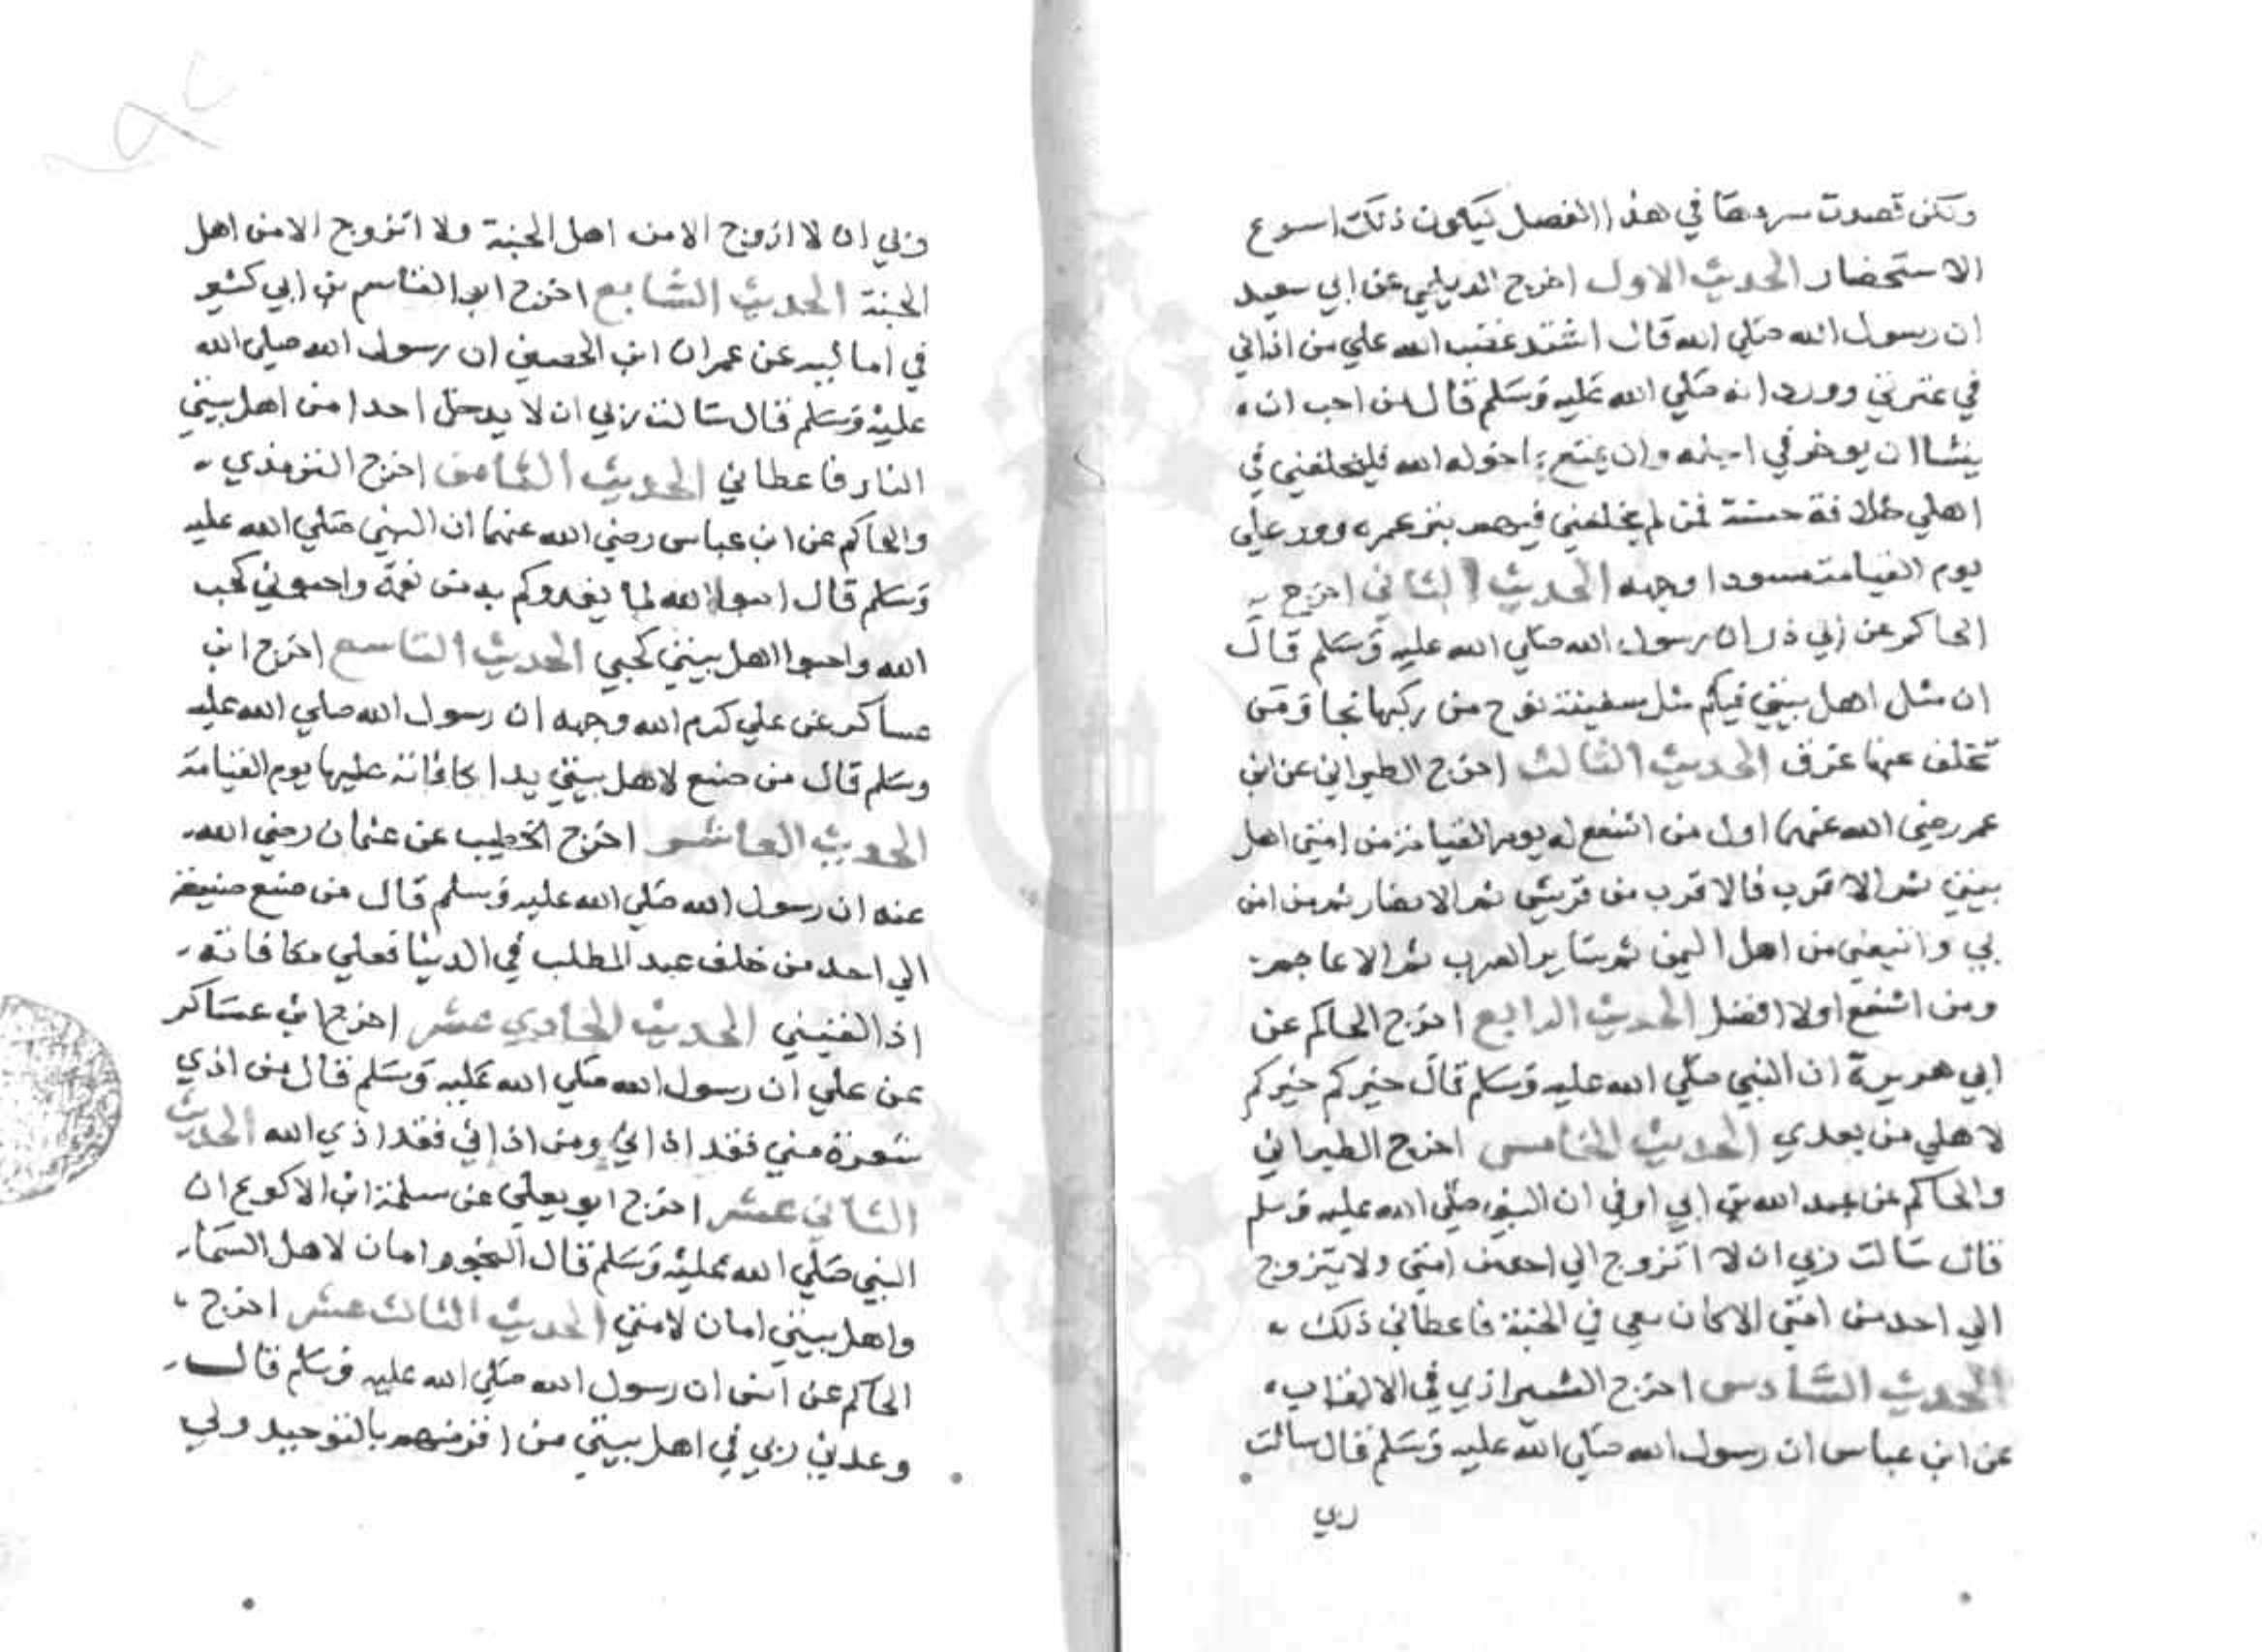 ولكن قصدت سردها في هذا الفصل ليكون ذلك اسرع
الاستحضار الحديث الاول اخرج الديلمي عن ابي سعيد
ان رسول الله صلي الله قال اشتد غضب الله علي من اذاني
في عترتي وورد انه صلي الله عليه وسلم قال من احب ان
ينشا ان يوخر في اجله وان يمتع بما خوله الله فليخلفني في
اهلي خلافة حسنة فمن لم يخلفني فيهم بتر عمره وورد علي
يوم القيامة مسودا وجهه الحديث الثاني اخرج
الحاكم عن ابي ذر ان رسول الله صلي الله عليه وسلم قال
ان مثل اهل بيتي فيكم مثل سفينة نوح من ركبها نجا ومن
تخلف عنها غرق الحديث الثالث اخرج الطبراني عن ابن
عمر رضي الله عنهما اول من اشفع له يوم القيامة من امتي اهل
بيتي ثم الاقرب فالاقرب من قريش ثم الانصار ثم من امن
بي واتبعني من اهل اليمن ثم ساير العرب ثم الاعاجم
ومن اشفع اولا افضل الحديث الرابع اخرج الحاكم عن
ابي هريرة ان النبي صلي الله عليه وسلم قال خيركم خيركم
لاهلي من بعدي الحديث الخامس اخرج الطبراني
والحاكم عن عبد الله بن ابي اوفي ان النبي صلي الله عليه وسلم
قال سالت ربي ان لا اتزوج الي احد من امتي ولا يتزوج
الي احد من امتي الا كان معي في الجنة فاعطاني ذلك
الحديث السادس اخرج الشيرازي في الالقاب
عن ابن عباس ان رسول الله صلي الله عليه وسلم قال سالت
ربي
ربي ان لا ازوج الا من اهل الجنة ولا اتزوج الا من اهل
الجنة الحديث السابع اخرج ابو القاسم بن ابي كشير
في اماليه عن عمران ابن الحصين ان رسول الله صلي الله
عليه وسلم قال سالت ربي ان لا يدخل احدا من اهل بيتي
النار فاعطاني الحديث الثامن اخرج الترمذي
والحاكم عن ابن عباس رضي الله عنهما ان النبي صلي الله عليه
وسلم قال احبوا الله لما يغدوكم به من نعمة واحبوني كحب
الله واحبوا اهل بيتي كحبي الحديث التاسع اخرج ابن
عساكر عن علي كرم الله وجهه ان رسول الله صلي الله عليه
وسلم قال من صنع لاهل بيتي يدا كافاته عليها يوم القيامة
الحديث العاشر اخرج الخطيب عن عثمان رضي الله
عنه ان رسول الله صلي الله عليه وسلم قال من صنع صنيعة
الي احد من خلف عبد المطلب في الدنيا فعلي مكافاته
اذا لقيني الحديث الحادي عشر اخرج ابن عساكر
عن علي ان رسول الله صلي الله عليه وسلم قال من اذي
شعرة مني فقد اذاني ومن اذاني فقد اذي الله الحديث
الثاني عشر اخرج ابو يعلي عن سلمة ابن الاكوع ان
النبي صلي الله عليه وسلم قال النجوم امان لاهل السما
واهل بيتي امان لامتي الحديث الثالث عشر اخرج
الحاكم عن انس ان رسول الله صلي الله عليه وسلم قال
وعدني ربي في اهل بيتي من اقر منهم بالتوحيد ولي